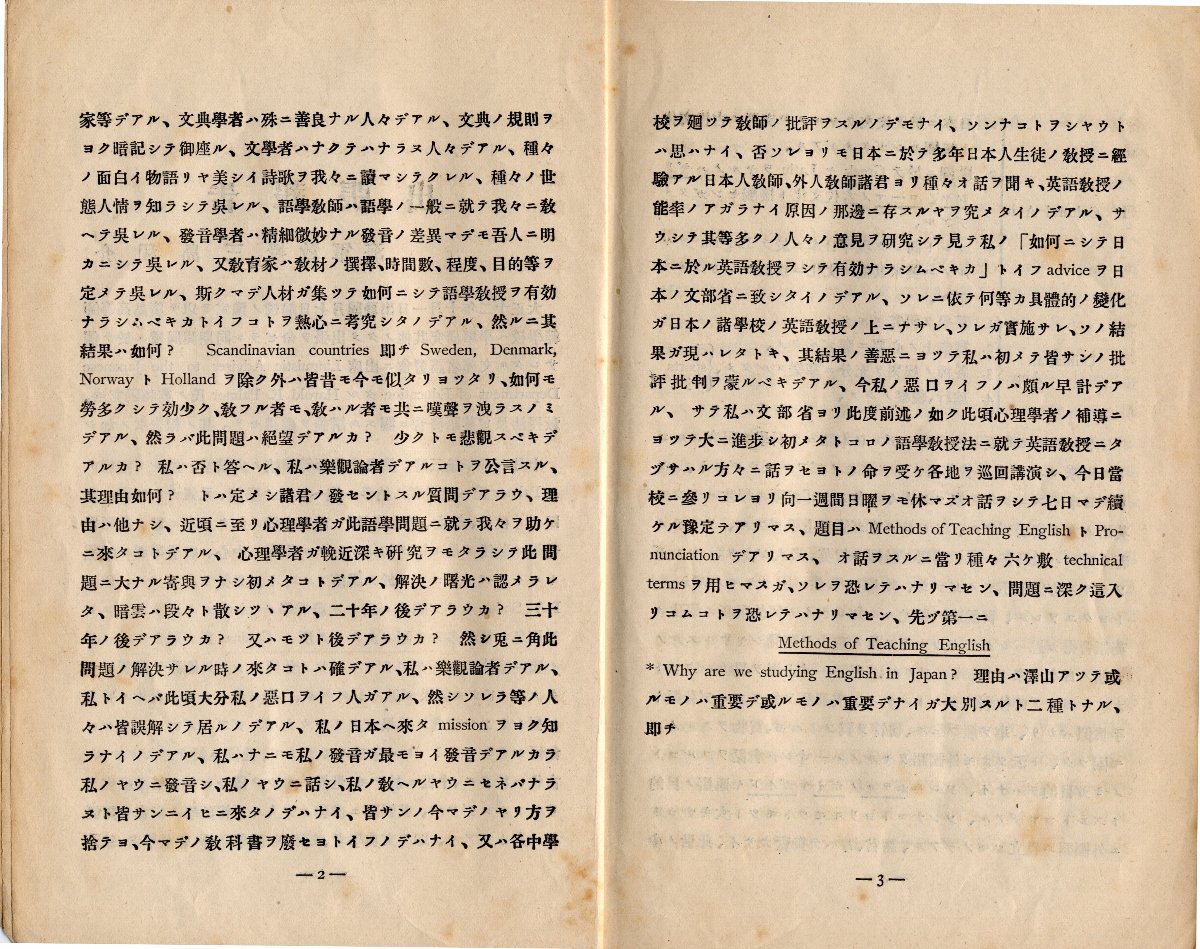 家等デアル、文典學者ハ殊ニ善良ナル人々デアル、文典ノ規則ヲ
ヨク暗記シテ御座ル、文學者ハナクテハナラヌ人々デアル、種々
ノ面白イ物語リヤ美シイ詩歌ヲ我々ニ讀マシテクレル、種々ノ世
態人情ヲ知ラシテ呉レル、語學敎師ハ語學ノ一般ニ就テ我々ニ敎
ヘテ呉レル、發音學者ハ精細微妙ナル發音ノ差異マデモ吾人ニ明
カニシテ呉レル、又敎育家ハ敎材ノ撰擇、時間數、程度、目的等ヲ
定メテ呉レル、斯クマデ人材ガ集ツテ如何ニシテ語學敎授ヲ有効
ナラシムベキカトイフコトヲ熱心ニ考究シタノデアル、然ルニ其
結果ハ如何? Scandinavian countries 即チ Sweden, Denmark,
Norway ト Holland ヲ除ク外ハ皆昔モ今モ似タリヨツタリ、如何モ
勞多クシテ効少ク、敎フル者モ、敎ハル者モ共ニ嘆聲ヲ洩ラスノミ
デアル、然ラバ此問題ハ絕望デアルカ? 少クトモ悲觀スベキデ
アルカ? 私ハ否ト答ヘル、私ハ樂觀論者デアルコトヲ公言スル、
其理由如何? トハ定メシ諸君ノ發セントスル質問デアラウ、理
由ハ他ナシ、近頃ニ至リ心理學者ガ此語學問題ニ就テ我々ヲ助ケ
ニ來タコトデアル、心理學者ガ輓近深キ硏究ヲモタラシテ此問
題ニ大ナル寄與ヲナシ初メタコトデアル、解決ノ曙光ハ認メラレ
タ、暗雲ハ段々ト散シツヽアル、二十年ノ後デアラウカ? 三十
年ノ後デアラウカ? 又ハモツト後デアラウカ? 然シ兎ニ角此
問題ノ解決サレル時ノ來タコトハ確デアル、私ハ樂觀論者デアル、
私トイヘバ此頃大分私ノ惡口ヲイフ人ガアル、然シソレラ等ノ人
々ハ皆誤解シテ居ルノデアル、私ノ日本ヘ來タ mission ヲヨク知
ラナイノデアル、私ハナニモ私ノ發音ガ最モヨイ發音デアルカラ
私ノヤウニ發音シ、私ノヤウニ話シ、私ノ敎ヘルヤウニセネバナラ
ヌト皆サンニイヒニ來タノデハナイ、皆サンノ今マデノヤリ方ヲ
捨テヨ、今マデノ敎科書ヲ廢セヨトイフノデハナイ、又ハ各中學
—2—
校ヲ廻ツテ敎師ノ批評ヲスルノデモナイ、ソンナコトヲシヤウト
ハ思ハナイ、否ソレヨリモ日本ニ於テ多年日本人生徒ノ敎授ニ經
驗アル日本人敎師、外人敎師諸君ヨリ種々オ話ヲ聞キ、英語敎授ノ
能率ノアガラナイ原因ノ那邊ニ存スルヤヲ究メタイノデアル、サ
ウシテ其等多クノ人々ノ意見ヲ研究シテ見テ私ノ「如何ニシテ日
本ニ於ル英語敎授ヲシテ有効ナラシムベキカ」トイフ advice ヲ日
本ノ文部省ニ致シタイノデアル、ソレニ依テ何等カ具體的ノ變化
ガ日本ノ諸學校ノ英語敎授ノ上ニナサレ、ソレガ實施サレ、ソノ結
果ガ現ハレタトキ、其結果ノ善惡ニヨツテ私ハ初メテ皆サンノ批
評批判ヲ蒙ルベキデアル、今私ノ惡口ヲイフノハ頗ル早計デア
ル、サテ私ハ文部省ヨリ此度前述ノ如ク此頃心理學者ノ補導ニ
ヨツテ大ニ進步シ初メタトコロノ語學敎授法ニ就テ英語敎授ニタ
ヅサハル方々ニ話ヲセヨトノ命ヲ受ケ各地ヲ巡回講演シ、今日當
校ニ參リコレヨリ向一週間日曜ヲモ休マズオ話ヲシテ七日マデ續
ケル豫定テアリマス、題目ハ Methods of Teaching English ト Pro-
nunciation デアリマス、オ話ヲスルニ當リ種々六ケ敷 technical
terms ヲ用ヒマスガ、ソレヲ恐レテハナリマセン、問題ニ深ク這入
リコムコトヲ恐レテハナリマセン、先ヅ第一ニ
Methods of Teaching English
* Why are we studying English in Japan? 理由ハ澤山アツテ或
ルモノハ重要デ或ルモノハ重要デナイガ大別スルト二種トナル、
即チ
—3—